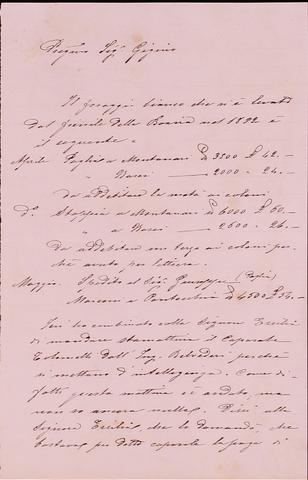 Pregmo Sigr Gigino
Il foraggio bianco che si è levato
dal fienile della Boaria nel 1892 è
il seguente.
Aprile Paglia a Montanari 3500 £ 42.-
" a Nucci 2000 - 24.-
da addebitare la metà ai coloni
do Stoppia a Montanari 6000 £ 60.-
" a Nucci 2600 - 26.-
Da addebitare un terzo ai coloni per-
chè avuto per lettiera.
Maggio. Spedito al Sigr Giuseppe (Paglia)
Marconi a 4500 £ 54.-
Ieri ho combinato colla Signora Ercilia
di mandare stamattina il Caporale
Colonello dall' Ing. Belvederi perchè
si mettano d'intelligenza. Come di-
fatti questa mattina c'è andato, ma
non so ancora nulla. Dissi alla
Signora Ercilia, che lo domandò, che
bastava per detto caporale la paga di